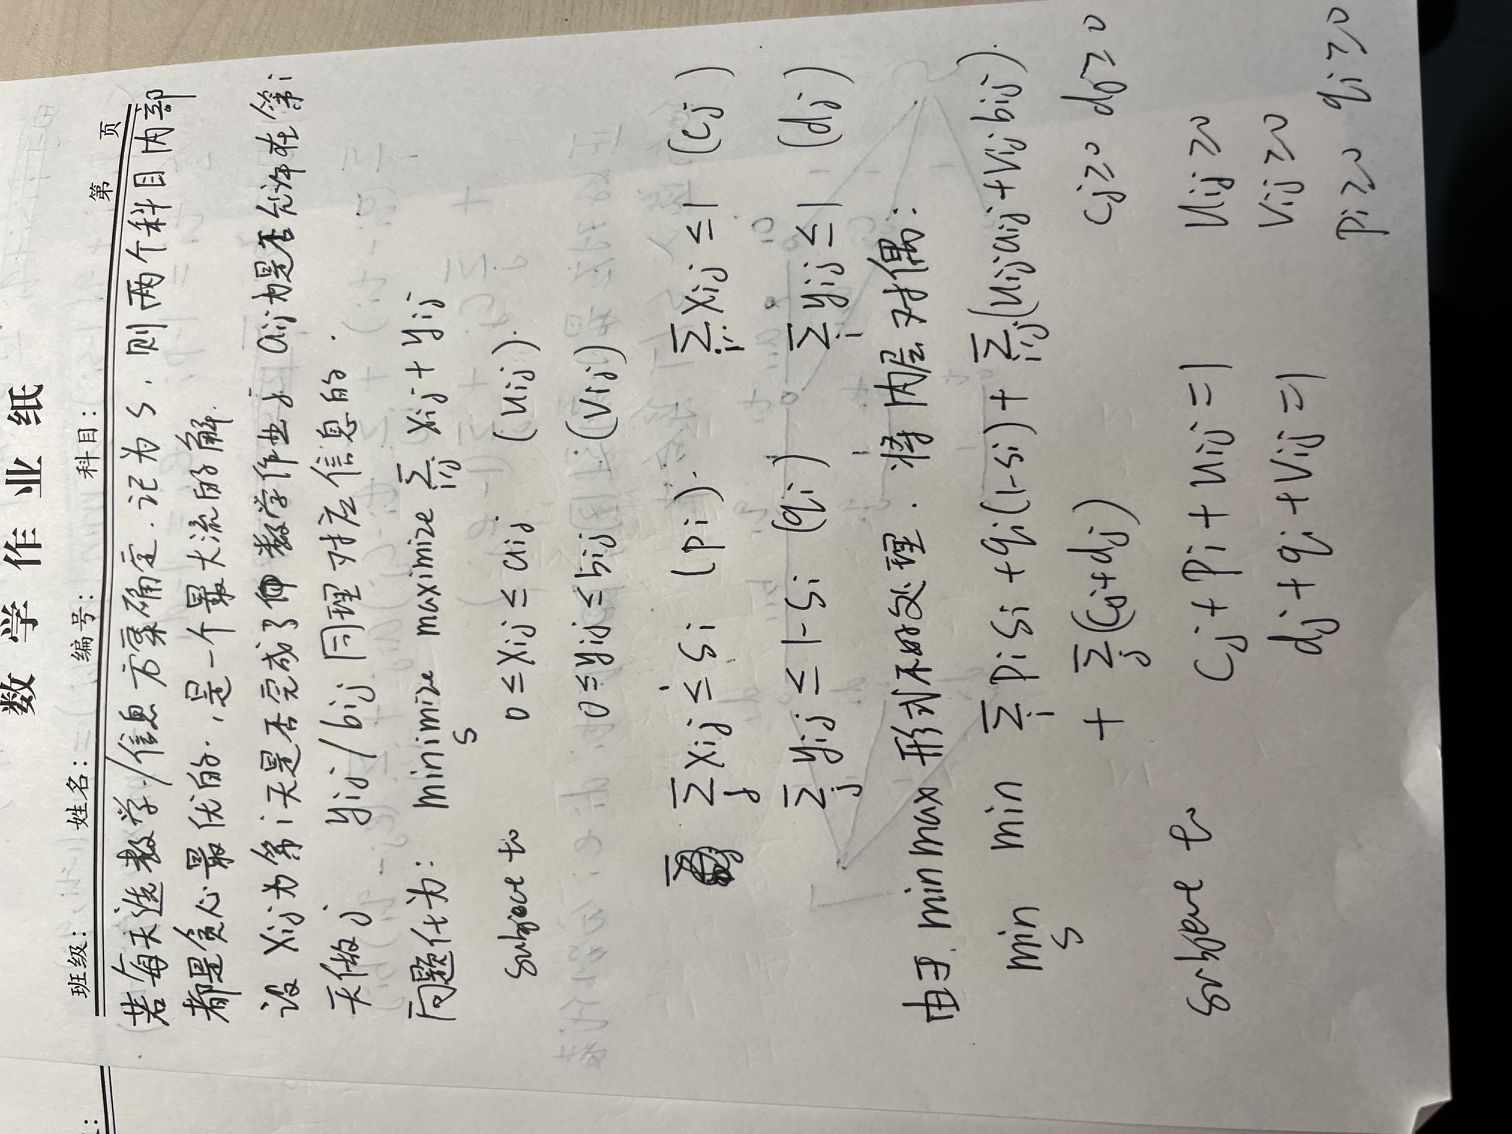 数 学 作 业 纸
班级： 姓名： 编号： 科目： 第 页
若每天选数学/信息方案确定，记为 S，则两个科目内部
都是贪心最优的，是一个最大流的解.
设 Xij 为第 i 天是否完成了 数学作业 j，aij 为是否允许在第 i
天做 j yij / bij 同理对应信息的.
问题化为： minimize maximize ∑ij Xij + yij
S
subject to 0 ≤ Xij ≤ aij (uij).
0 ≤ yij ≤ bij (Vij)
∑j Xij ≤ Si (pi). ∑i Xij ≤ 1 (Cj)
∑j yij ≤ 1-Si (qi) ∑i yij ≤ 1 (dj)
由于 min max 形式不好处理. 将内层对偶：
min min ∑i Pi Si + qi(1-Si) + ∑ij (uij aij + Vij bij).
S + ∑j (Cj + dj) Cj ≥ 0 dj ≥ 0
subject to Cj + Pi + uij = 1 uij ≥ 0
dj + qi + Vij = 1 Vij ≥ 0
Pi ≥ 0 qi ≥ 0